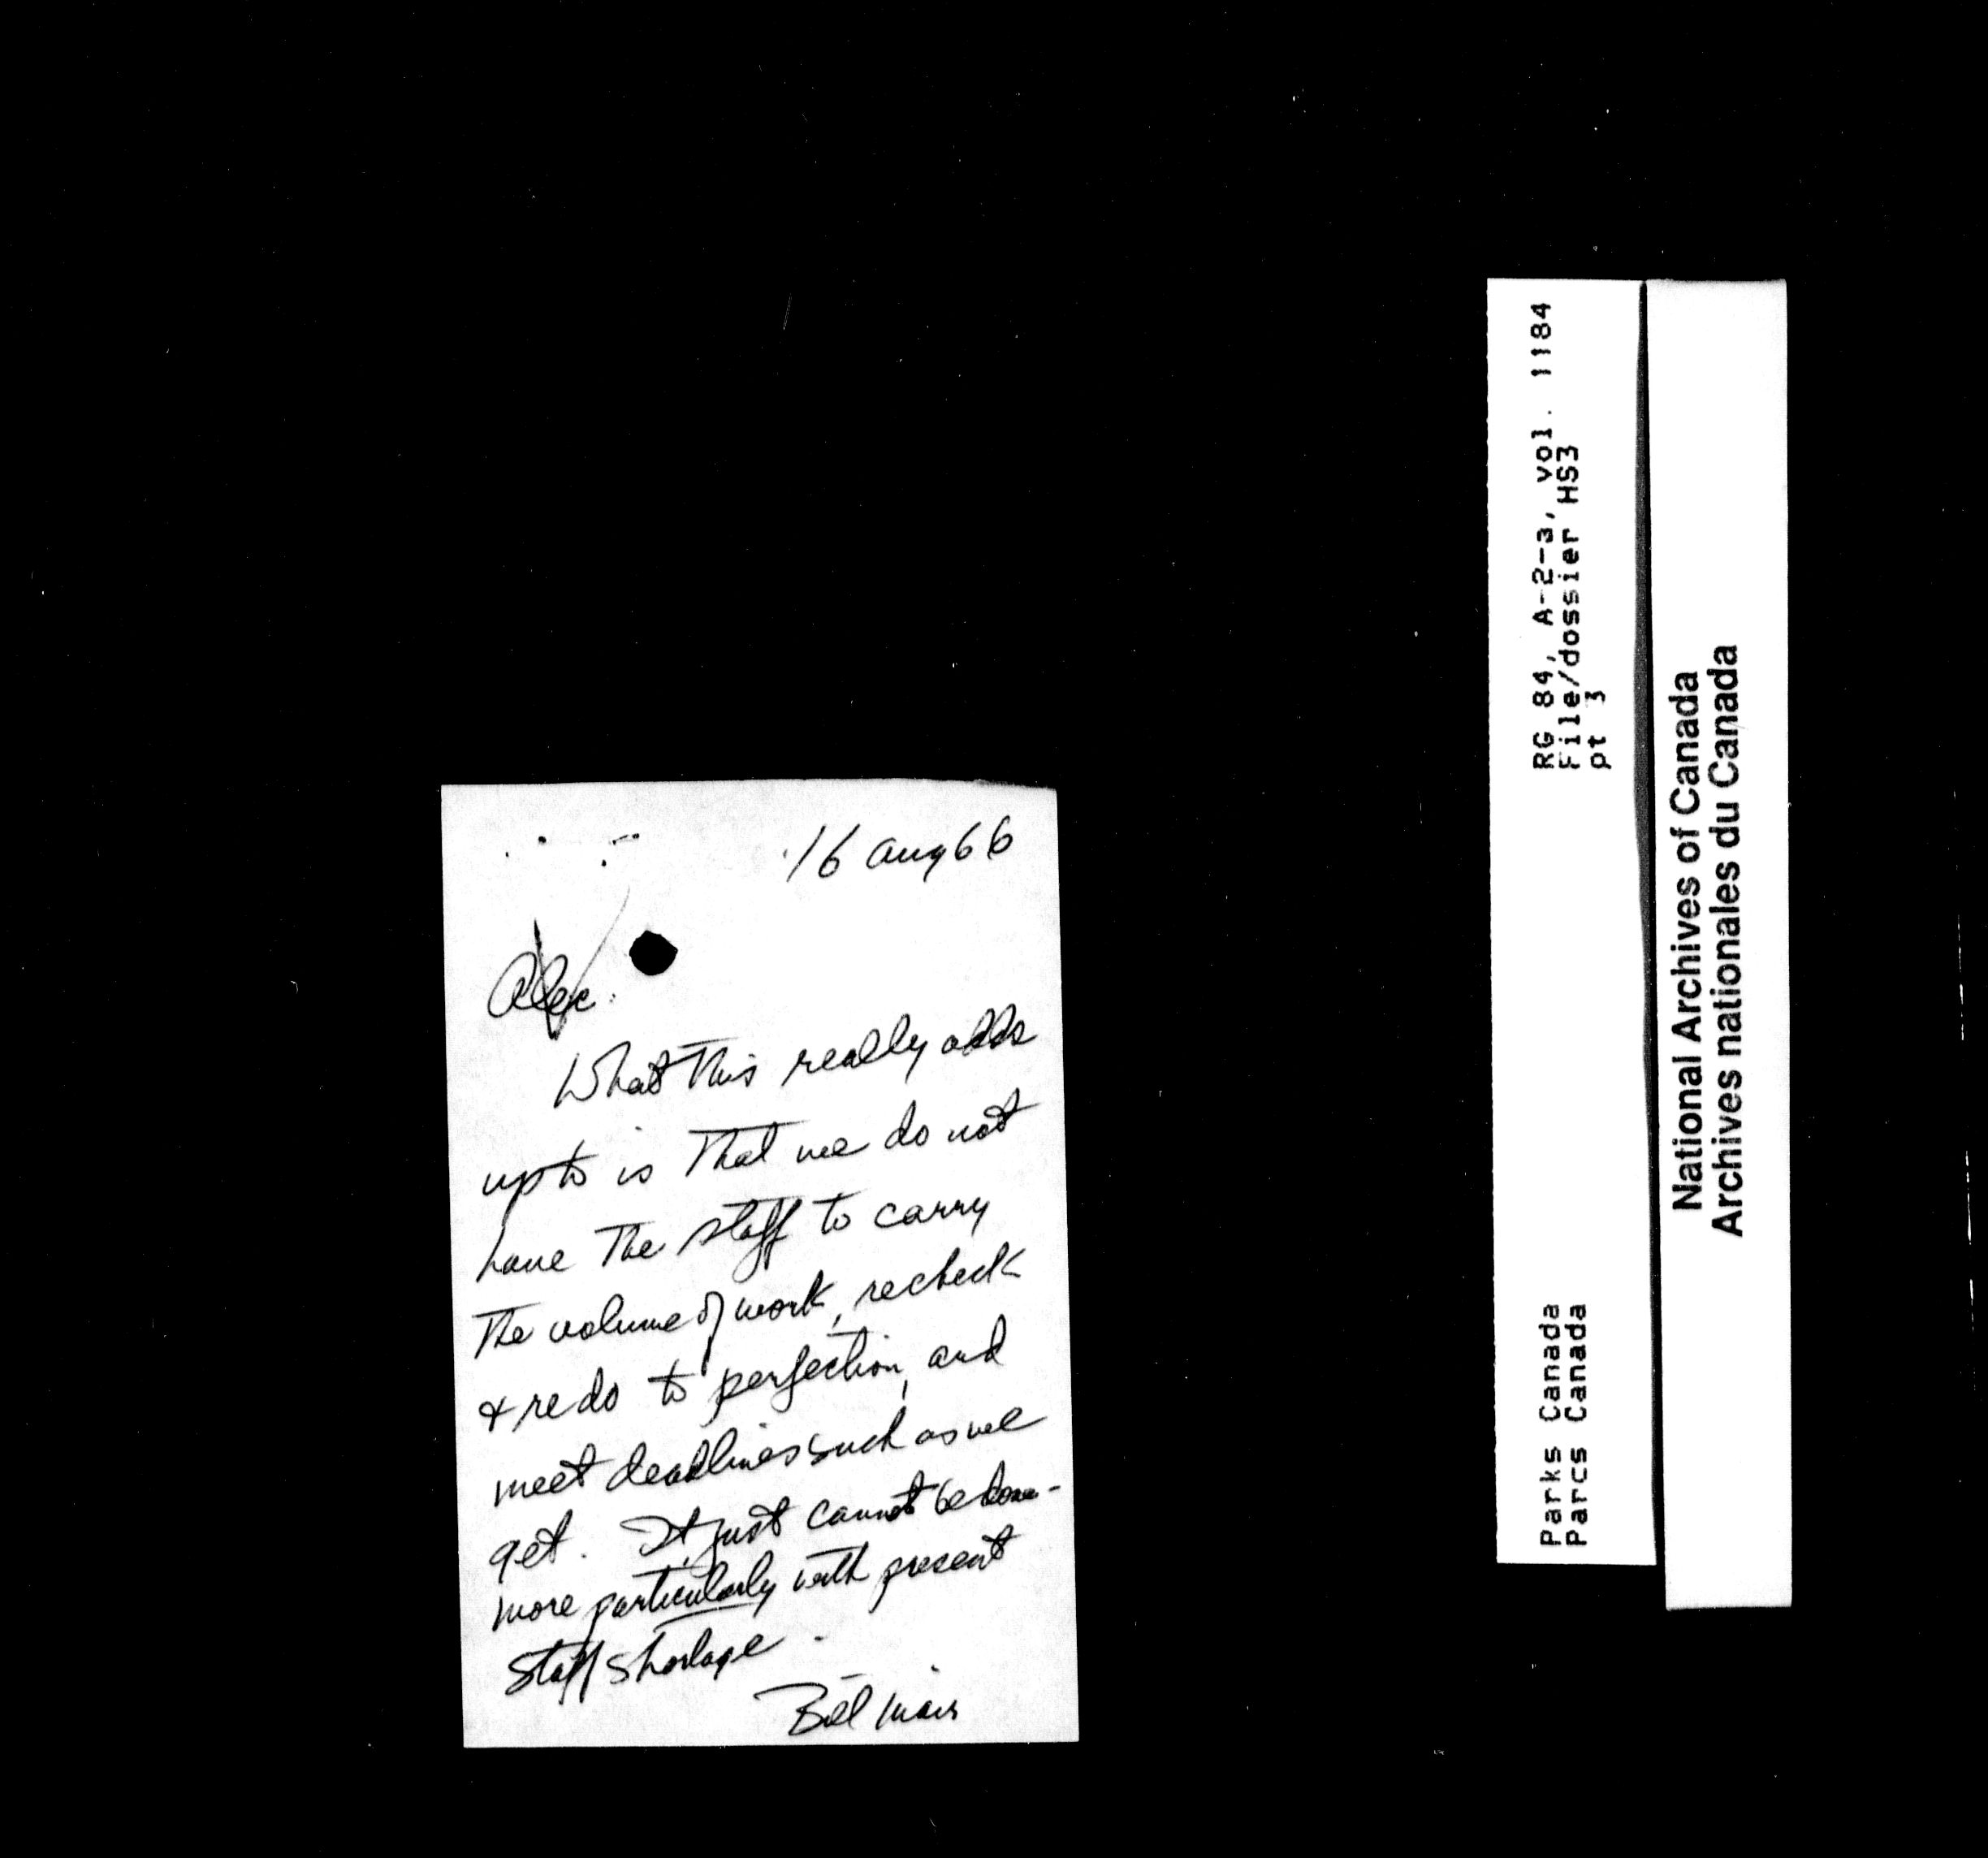 16 Aug 66
Alec.
What This really adds
up to is That we do not
have The staff to carry
The volume of work, recheck
& redo to perfection, and
meet deadlines such as we
get. It just cannot be done -
more particularly with present
staff shortage -
Bill Mair
RG 84, A-2-a, vol. 1184
File/dossier HS3
pt 3
Parks Canada
Parcs Canada
National Archives of Canada
Archives nationales du Canada